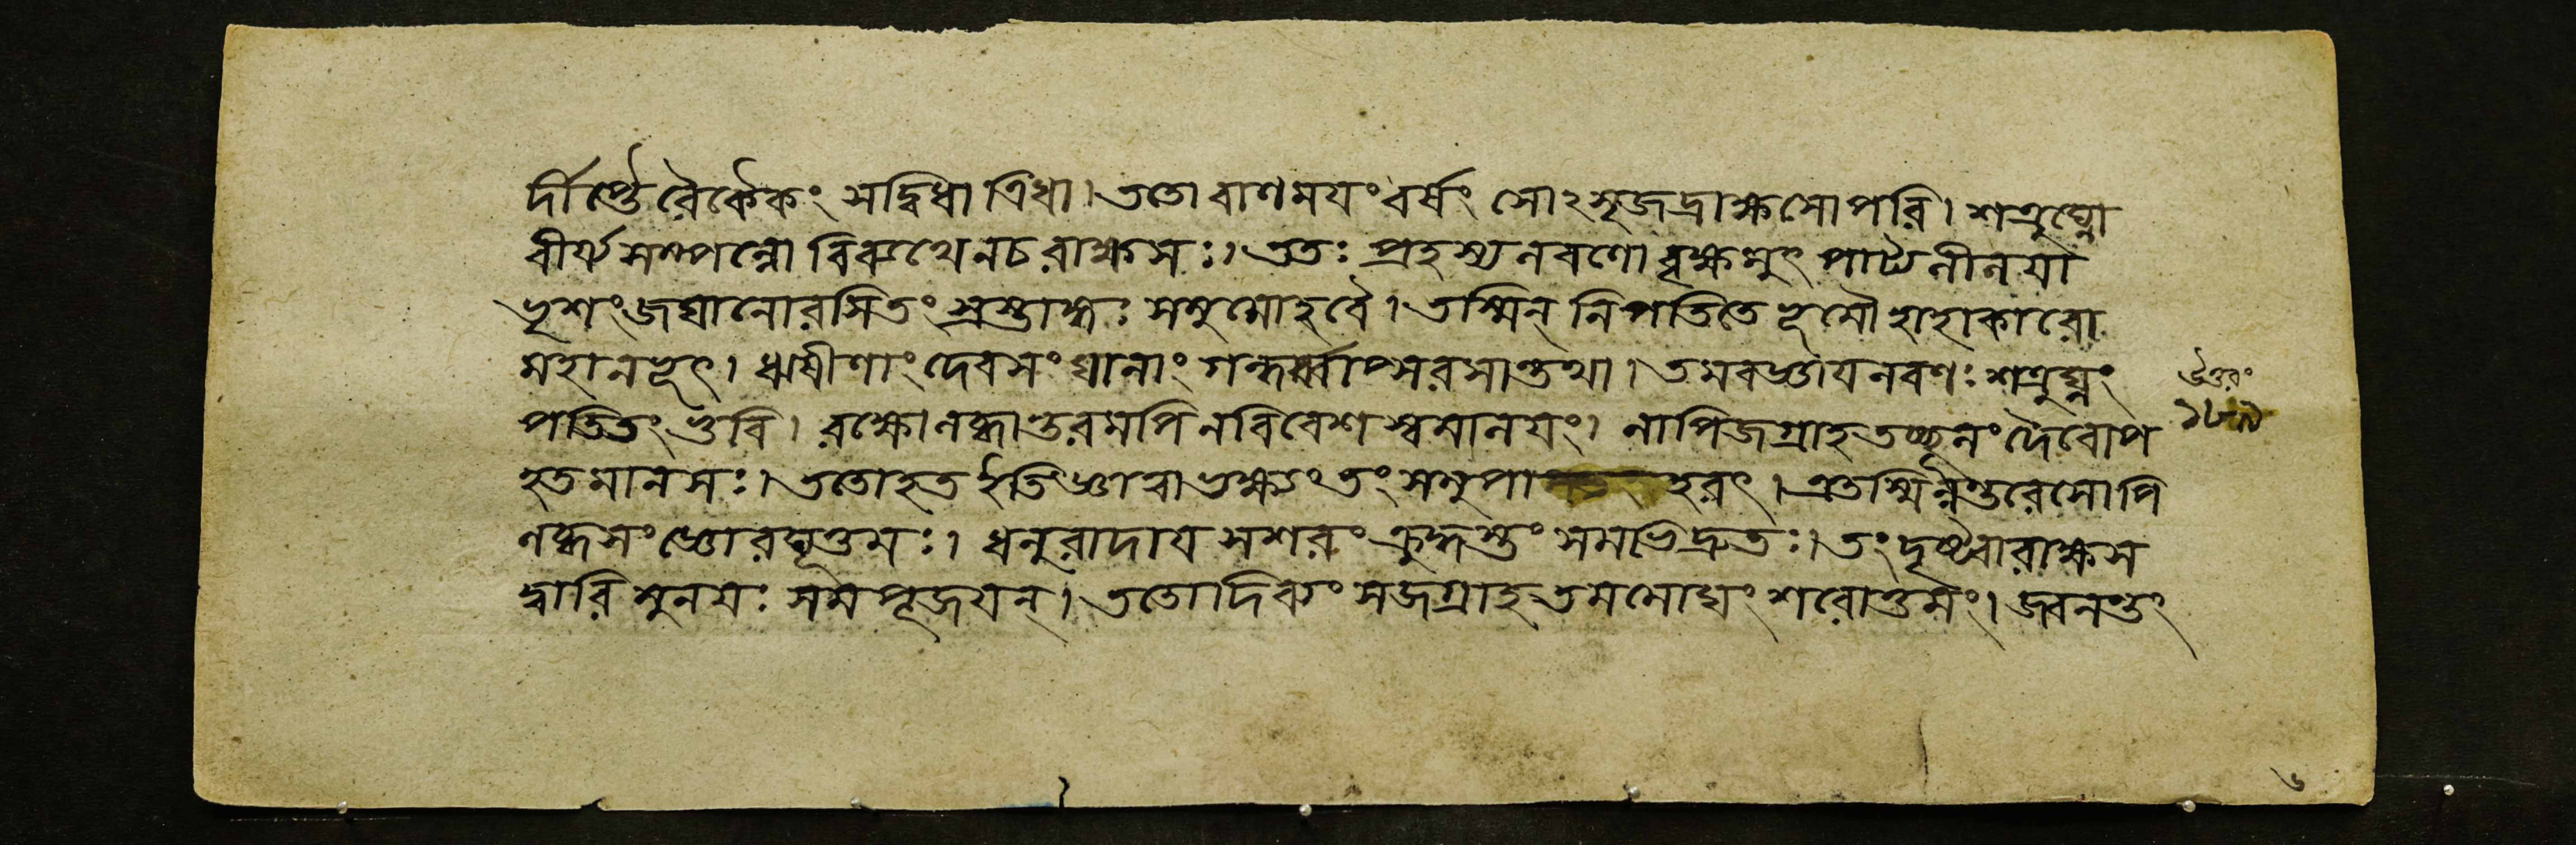 র্দীপ্তৈরেকৈকং সদ্বিধা ত্রিধা। ততো বাণময়ং বর্ষং সোঽসৃজদ্রাক্ষসোপরি। শত্রুঘ্নো
বীর্য্যসম্পন্নো বিব্যথে নচ রাক্ষসঃ। ততঃ প্রহস্য লবণো বৃক্ষমুৎপাট্য লীলয়া
ভৃশং জঘানোরসি তং স্রস্তাক্ষঃ স মুমোহ বৈ। তস্মিন্ নিপতিতে ভূমৌ হাহাকারো
মহানভূৎ। ঋষীণাং দেবসংঘানাং গন্ধর্ব্বাপ্সরসান্তথা। তমবজ্ঞায় লবণঃ শত্রুঘ্নং
পতিতং ভুবি। রক্ষো লব্ধান্তরমপি ন বিবেশ স্বমালয়ং। নাপি জগ্রাহ তচ্ছূলং দৈবোপ
হতমানসঃ। ততো হত ইতি জ্ঞাত্বা ভক্ষ্যং তং সমুপাহরৎ। এতস্মিন্নন্তরে সোপি
লব্ধসংজ্ঞো রঘূত্তমঃ। ধনুরাদায় সশরং ক্রুদ্ধস্তং সমভিদ্রুতঃ। তং দৃষ্ট্বা রাক্ষস
দ্বারি মুনয়ঃ সমপূজয়ন্। ততো দিব্যং স জগ্রাহ তমমোঘং শরোত্তমং। জ্বলন্তং
উত্তরং
১৮৯